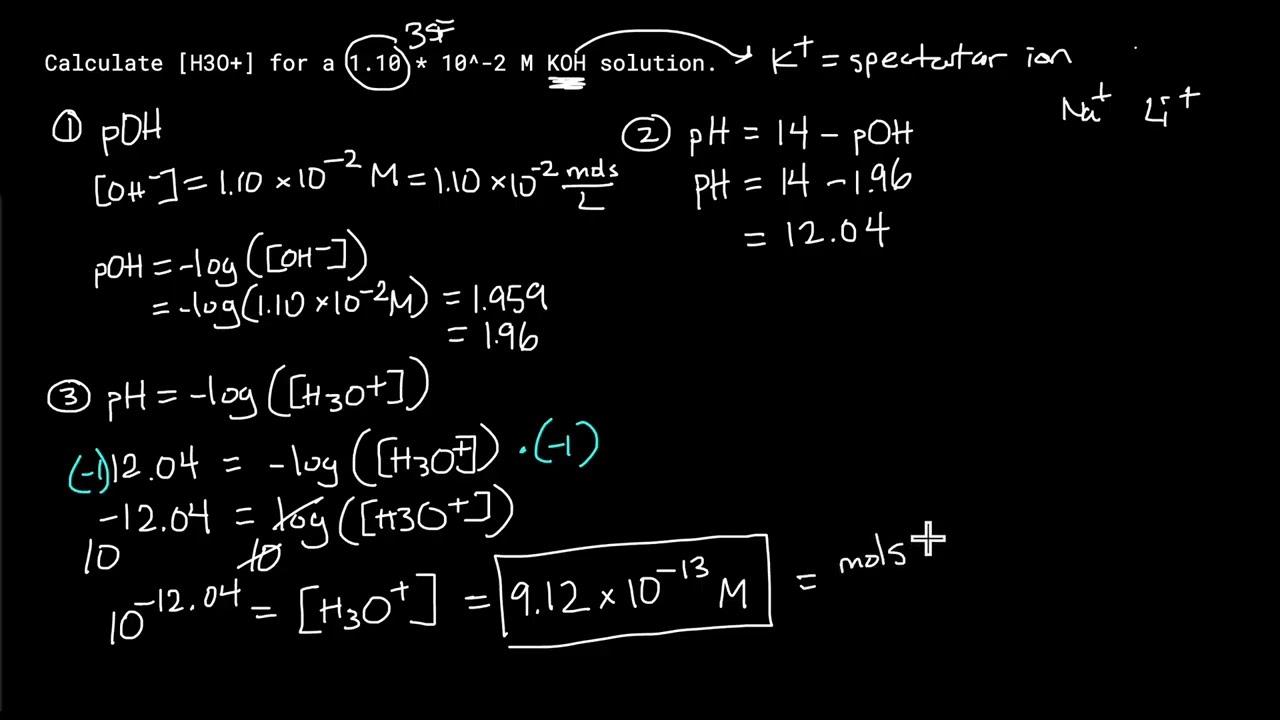 3SF
Calculate [H3O+] for a 1.10 * 10^-2 M KOH solution. → K⁺ = spectator ion
Na⁺ Li⁺
① pOH
[OH⁻] = 1.10 × 10⁻² M = 1.10 × 10⁻² mols/L
pOH = -log([OH⁻])
= -log(1.10 × 10⁻² M) = 1.959
= 1.96
② pH = 14 - pOH
pH = 14 - 1.96
= 12.04
③ pH = -log([H3O+])
(-1) 12.04 = -log([H3O+]) · (-1)
-12.04 = log([H3O+])
10 10
10^-12.04 = [H3O⁺] = 9.12 × 10⁻¹³ M = mols